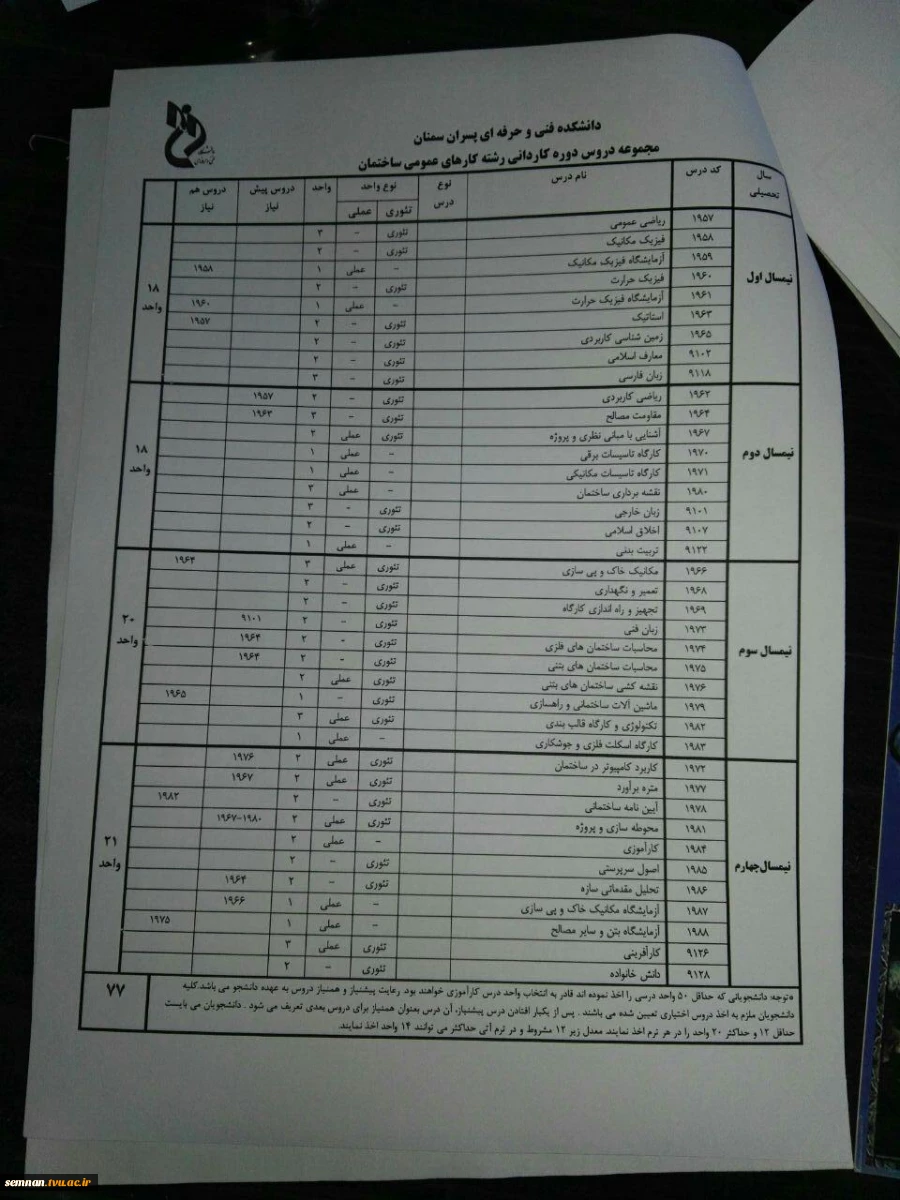 دانشکده فنی و حرفه ای پسران سمنان
مجموعه دروس دوره کاردانی رشته کارهای عمومی ساختمان
سال تحصیلی | کد درس | نام درس | نوع درس | نوع واحد | واحد | دروس پیش نیاز | دروس هم نیاز
تئوری | عملی
نیمسال اول
۱۹۵۷ ریاضی عمومی تئوری - ۳
۱۹۵۸ فیزیک مکانیک تئوری - ۲
۱۹۵۹ آزمایشگاه فیزیک مکانیک - عملی ۱ ۱۹۵۸
۱۹۶۰ فیزیک حرارت تئوری - ۲
۱۹۶۱ آزمایشگاه فیزیک حرارت - عملی ۱ ۱۹۶۰
۱۹۶۳ استاتیک تئوری - ۲ ۱۹۵۷
۱۹۶۵ زمین شناسی کاربردی تئوری - ۲
۹۱۰۲ معارف اسلامی تئوری - ۲
۹۱۱۸ زبان فارسی تئوری - ۳
۱۸ واحد
نیمسال دوم
۱۹۶۲ ریاضی کاربردی تئوری - ۲ ۱۹۵۷
۱۹۶۴ مقاومت مصالح تئوری - ۳ ۱۹۶۳
۱۹۶۷ آشنایی با مبانی نظری و پروژه تئوری عملی ۲
۱۹۷۰ کارگاه تاسیسات برقی - عملی ۱
۱۹۷۱ کارگاه تاسیسات مکانیکی - عملی ۱
۱۹۸۰ نقشه برداری ساختمان - عملی ۳
۹۱۰۱ زبان خارجی تئوری - ۳
۹۱۰۷ اخلاق اسلامی تئوری - ۲
۹۱۲۲ تربیت بدنی - عملی ۱
۱۸ واحد
نیمسال سوم
۱۹۶۶ مکانیک خاک و پی سازی تئوری عملی ۳ ۱۹۶۴
۱۹۶۸ تعمیر و نگهداری تئوری - ۲
۱۹۶۹ تجهیز و راه اندازی کارگاه تئوری - ۲
۱۹۷۳ زبان فنی تئوری - ۲ ۹۱۰۱
۱۹۷۴ محاسبات ساختمان های فلزی تئوری - ۲ ۱۹۶۴
۱۹۷۵ محاسبات ساختمان های بتنی تئوری - ۲ ۱۹۶۴
۱۹۷۶ نقشه کشی ساختمان های بتنی تئوری عملی ۲
۱۹۷۹ ماشین آلات ساختمانی و راهسازی تئوری - ۱ ۱۹۶۵
۱۹۸۲ تکنولوژی و کارگاه قالب بندی تئوری عملی ۳
۱۹۸۳ کارگاه اسکلت فلزی و جوشکاری - عملی ۱
۲۰ واحد
نیمسال چهارم
۱۹۷۲ کاربرد کامپیوتر در ساختمان تئوری عملی ۲ ۱۹۷۶
۱۹۷۷ متره برآورد تئوری عملی ۲ ۱۹۶۷
۱۹۷۸ آیین نامه ساختمانی تئوری - ۲ ۱۹۸۲
۱۹۸۱ محوطه سازی و پروژه تئوری عملی ۲ ۱۹۶۷-۱۹۸۰
۱۹۸۴ کارآموزی - عملی ۲
۱۹۸۵ اصول سرپرستی تئوری - ۲
۱۹۸۶ تحلیل مقدماتی سازه تئوری - ۲ ۱۹۶۴
۱۹۸۷ آزمایشگاه مکانیک خاک و پی سازی - عملی ۱ ۱۹۶۶
۱۹۸۸ آزمایشگاه بتن و سایر مصالح - عملی ۱ ۱۹۷۵
۹۱۲۶ کارآفرینی تئوری عملی ۳
۹۱۲۸ دانش خانواده تئوری - ۲
۲۱ واحد
*توجه: دانشجویانی که حداقل ۵۰ واحد درسی را اخذ نموده اند قادر به انتخاب واحد درس کارآموزی خواهند بود. رعایت پیشنیاز و همنیاز دروس به عهده دانشجو می باشد.کلیه
دانشجویان ملزم به اخذ دروس اختیاری تعیین شده می باشند . پس از یکبار افتادن درس پیشنیاز، آن درس بعنوان همنیاز برای دروس بعدی تعریف می شود . دانشجویان می بایست
حداقل ۱۲ و حداکثر ۲۰ واحد را در هر ترم اخذ نمایند. معدل زیر ۱۲ مشروط و در ترم آتی حداکثر می توانند ۱۴ واحد اخذ نمایند.
۷۷
semnan.tvu.ac.ir